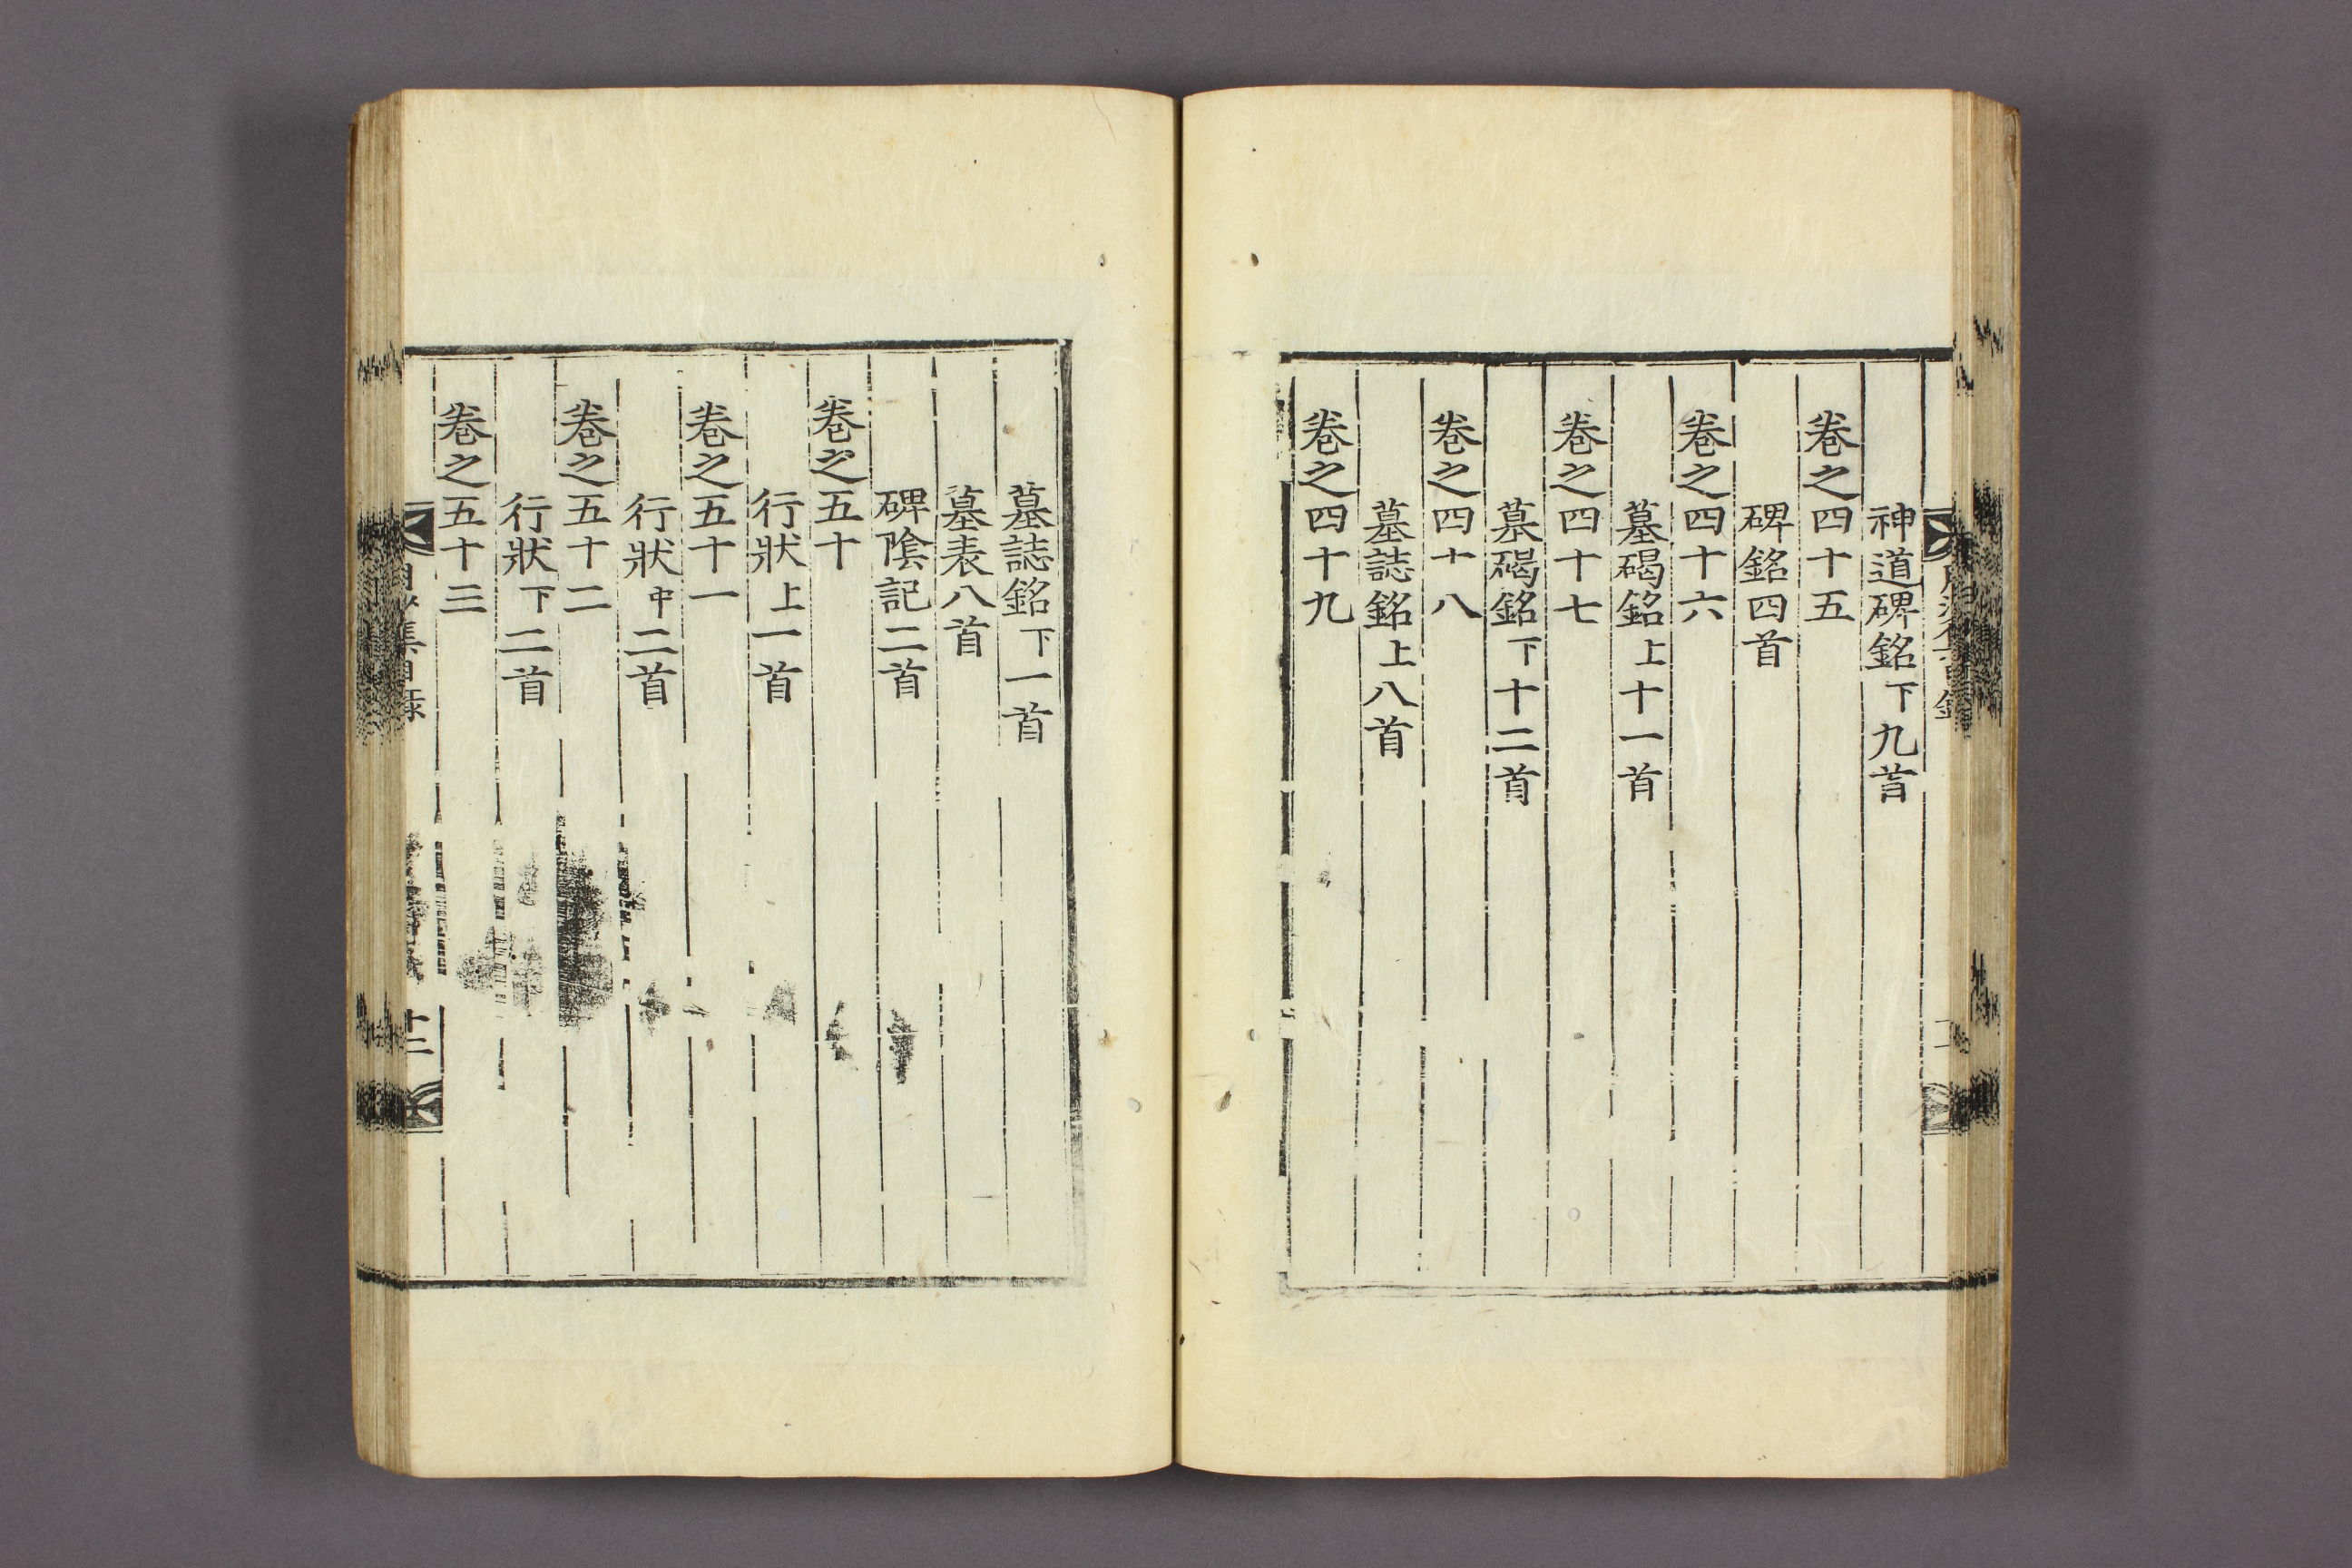 神道碑銘下九首
卷之四十五
碑銘四首
卷之四十六
墓碣銘上十一首
卷之四十七
墓碣銘下十二首
卷之四十八
墓誌銘上八首
卷之四十九
墓誌銘下一首
墓表八首
碑陰記二首
卷之五十
行狀上一首
卷之五十一
行狀中二首
卷之五十二
行狀下二首
卷之五十三
集目錄
十三